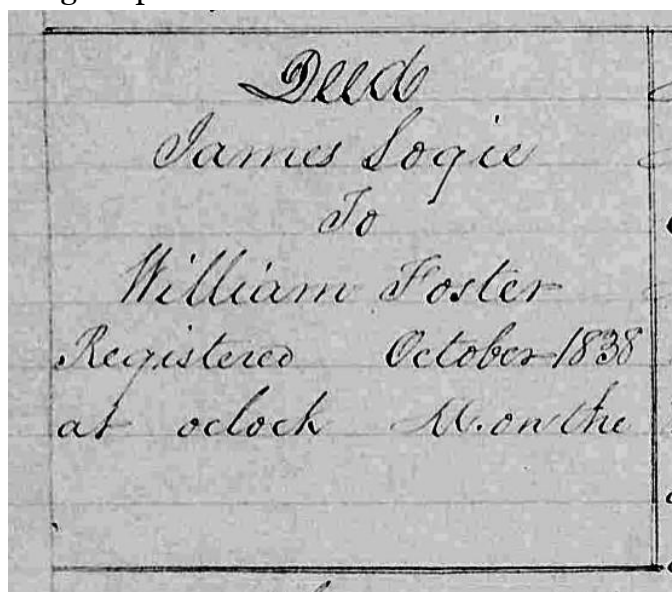 Deed
James Logie
To
William Foster
Registered October 1838
at oclock M. on the